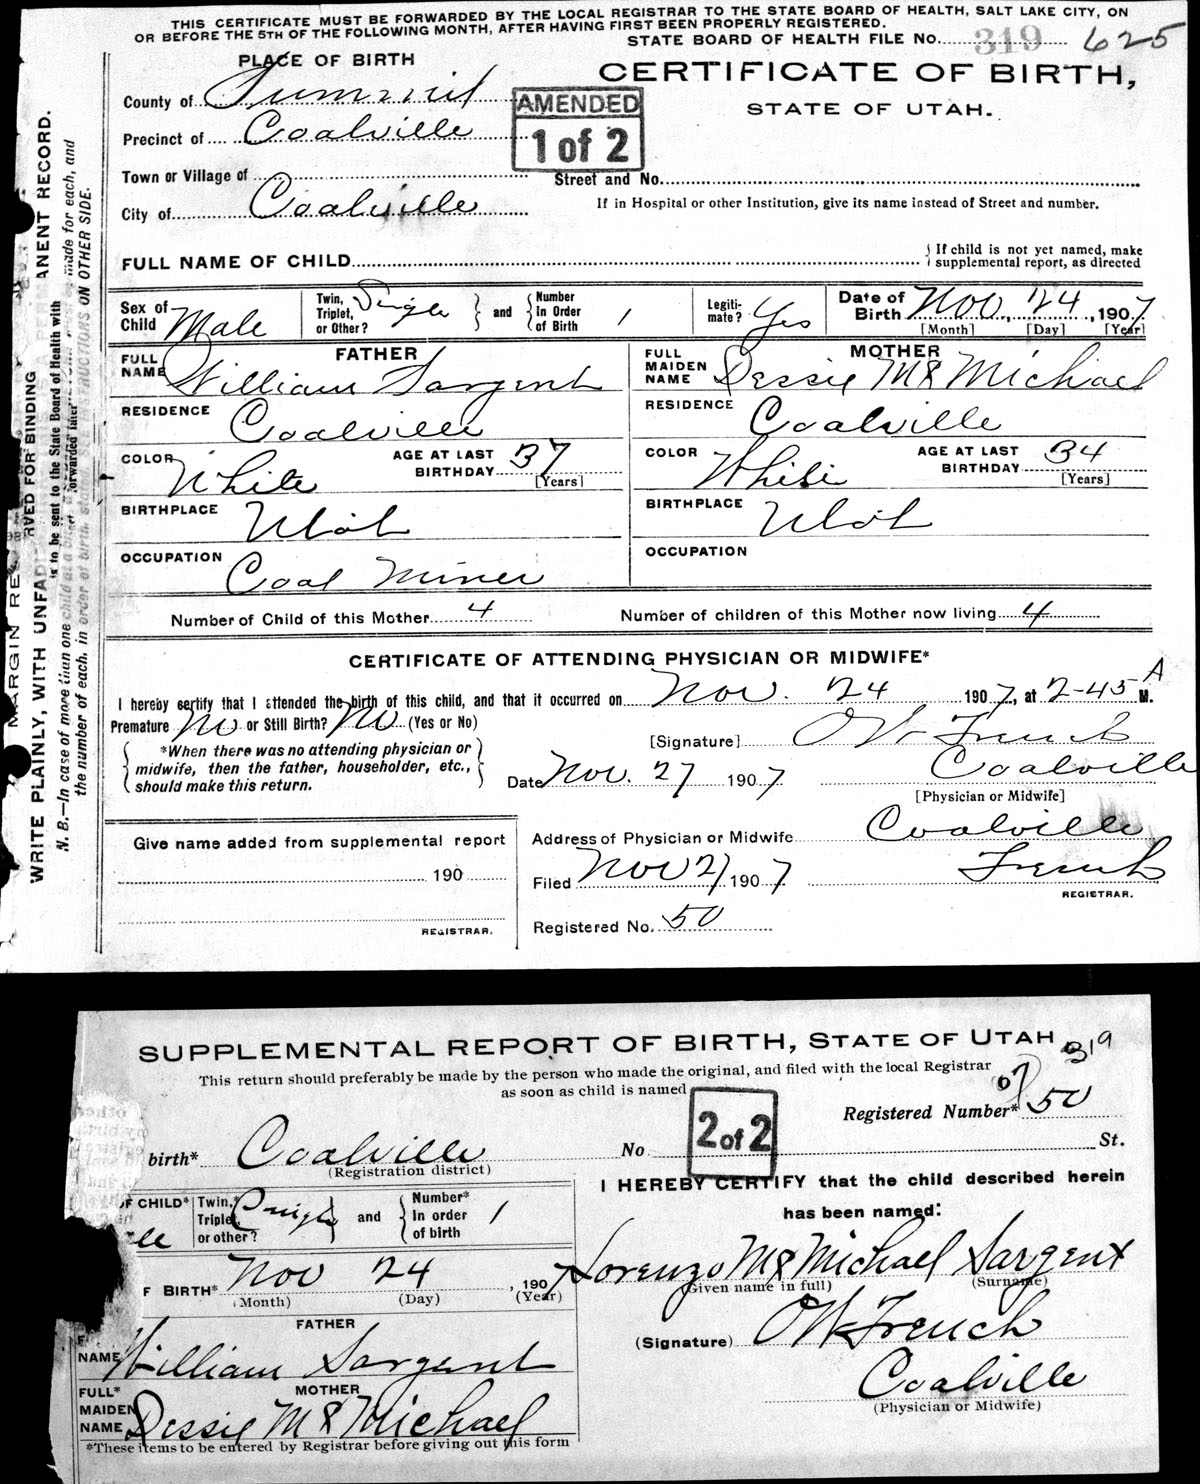 THIS CERTIFICATE MUST BE FORWARDED BY THE LOCAL REGISTRAR TO THE STATE BOARD OF HEALTH, SALT LAKE CITY, ON
OR BEFORE THE 5TH OF THE FOLLOWING MONTH, AFTER HAVING FIRST BEEN PROPERLY REGISTERED.
STATE BOARD OF HEALTH FILE No. 319 625
PLACE OF BIRTH
CERTIFICATE OF BIRTH,
STATE OF UTAH.
County of Summit
AMENDED
1 of 2
Precinct of Coalville
Town or Village of
Street and No.
City of Coalville
If in Hospital or other Institution, give its name instead of Street and number.
FULL NAME OF CHILD
If child is not yet named, make
supplemental report, as directed
Sex of Child Male
Twin, Triplet, or Other? Single
and Number in Order of Birth 1
Legitimate? Yes
Date of Birth Nov. 24, 1907
[Month] [Day] [Year]
FATHER
FULL NAME William Sargent
RESIDENCE Coalville
COLOR White
AGE AT LAST BIRTHDAY 37
[Years]
BIRTHPLACE Utah
OCCUPATION Coal Miner
MOTHER
FULL MAIDEN NAME Dessie Mc Michael
RESIDENCE Coalville
COLOR White
AGE AT LAST BIRTHDAY 34
[Years]
BIRTHPLACE Utah
OCCUPATION
Number of Child of this Mother 4
Number of children of this Mother now living 4
CERTIFICATE OF ATTENDING PHYSICIAN OR MIDWIFE*
I hereby certify that I attended the birth of this child, and that it occurred on Nov. 24 1907, at 2-45 A M.
Premature No or Still Birth? No (Yes or No)
*When there was no attending physician or
midwife, then the father, householder, etc.,
should make this return.
[Signature] O W French
Date Nov. 27 1907
Coalville
[Physician or Midwife]
Give name added from supplemental report
190
REGISTRAR.
Address of Physician or Midwife Coalville
Filed Nov 27 1907
French
REGISTRAR.
Registered No. 50
MARGIN RESERVED FOR BINDING
WRITE PLAINLY, WITH UNFAD
A PERMANENT RECORD.
N. B.—In case of more than one child at a
the number of each, in order of birth,
is to be sent to the State Board of Health with
forwarded later
made for each, and
SEE INSTRUCTIONS ON OTHER SIDE.
SUPPLEMENTAL REPORT OF BIRTH, STATE OF UTAH 319
This return should preferably be made by the person who made the original, and filed with the local Registrar
as soon as child is named
07
Registered Number* 50
2 of 2
birth* Coalville
(Registration district)
No St.
OF CHILD*
Twin,* Triplet, or other? Single
and Number* In order of birth 1
F BIRTH* Nov 24, 1907
(Month) (Day) (Year)
I HEREBY CERTIFY that the child described herein
has been named:
Lorenzo Mc Michael Sargent
(Given name in full) (Surname)
FATHER
NAME William Sargent
(Signature) O W French
MOTHER
FULL* MAIDEN NAME Dessie Mc Michael
Coalville
(Physician or Midwife)
*These items to be entered by Registrar before giving out this form